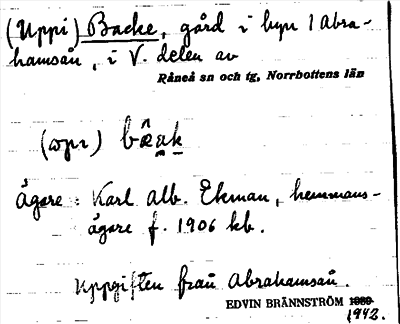 (Uppi) Backe, gård i byn 1 Abra-
hamsån, i V. delen av
Råneå sn och tg, Norrbottens län
(upi) bæ̂ak
Ägare: Karl Alb. Ekman, hemmans-
ägare f. 1906 kb.
Uppgiften från Abrahamsån.
EDVIN BRÄNNSTRÖM
1942.